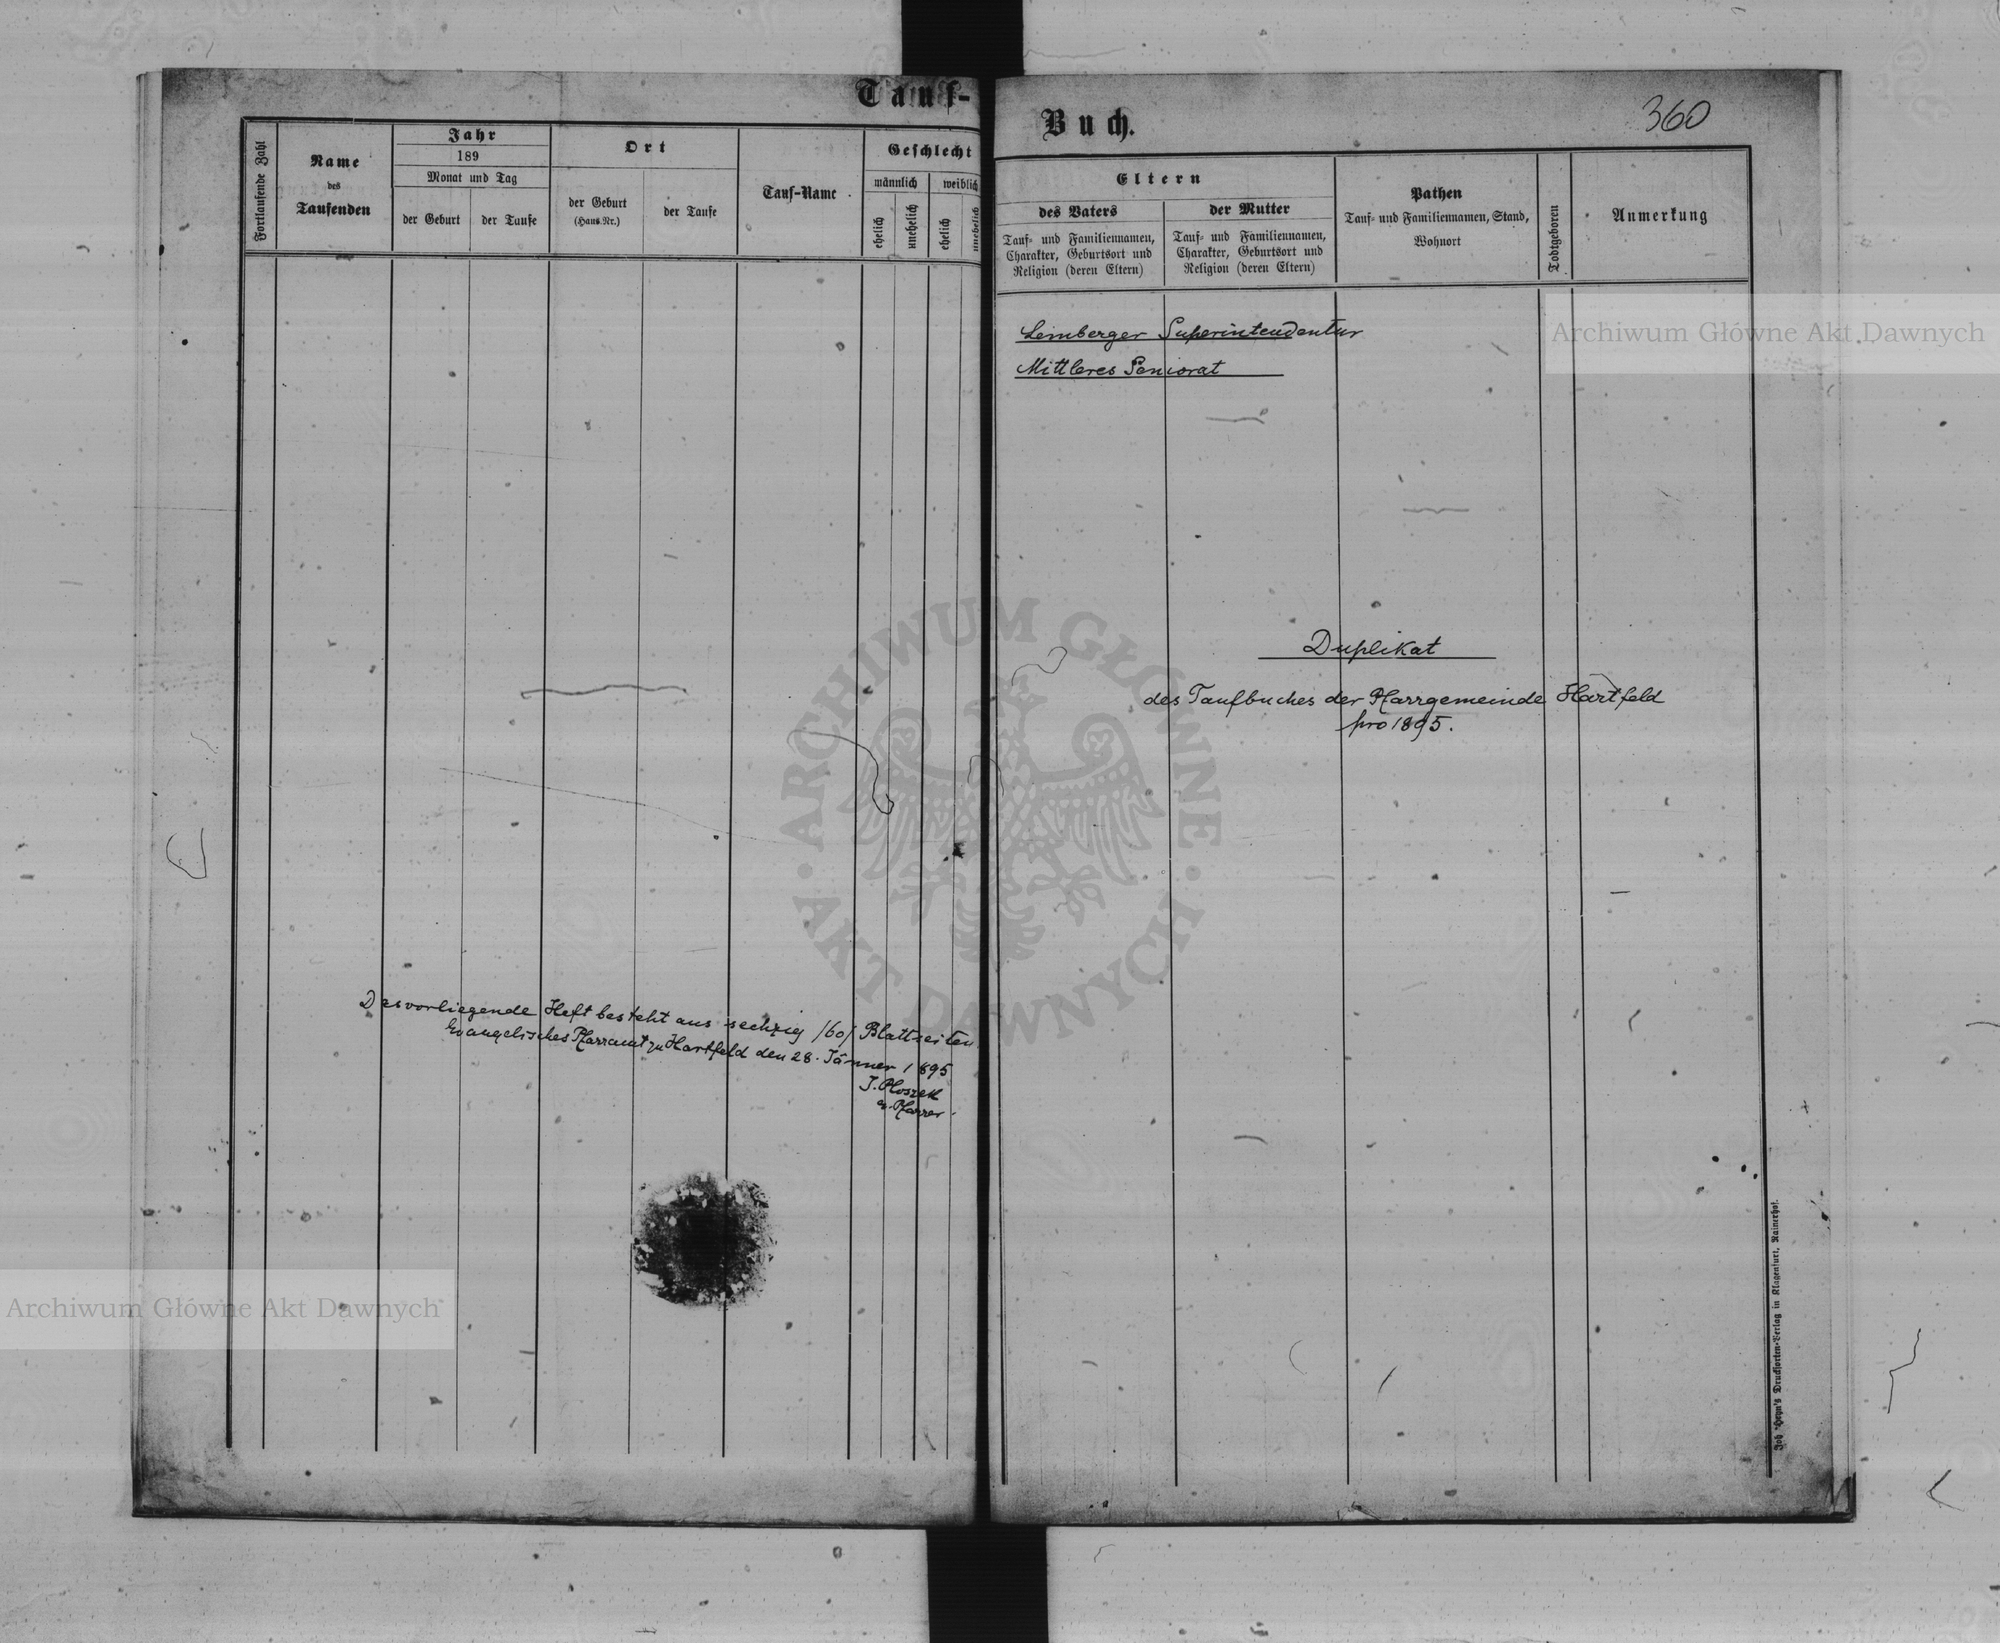 Tauf-
Fortlaufende Zahl
Name
des
Taufenden
Jahr
189
Monat und Tag
der Geburt
der Taufe
Ort
der Geburt
(Haus-Nr.)
der Taufe
Tauf-Name
Geschlecht
männlich
weiblich
ehelich
unehelich
ehelich
unehelich
Das vorliegende Heft besteht aus sechzig /60/ Blattseiten.
Evangelisches Pfarramt zu Hartfeld den 28. Jänner 1895
ev. Pfarrer.
Buch.
360
Eltern
des Vaters
Tauf- und Familiennamen,
Charakter, Geburtsort und
Religion (deren Eltern)
der Mutter
Tauf- und Familiennamen,
Charakter, Geburtsort und
Religion (deren Eltern)
Pathen
Tauf- und Familiennamen, Stand,
Wohnort
Todtgeboren
Anmerkung
Lemberger Superintendentur
Mittleres Seniorat
Duplikat
des Taufbuches der Pfarrgemeinde Hartfeld
pro 1895.
Joh. Heyn's Drucksorten-Verlag in Klagenfurt, Rainerhof.
Archiwum Główne Akt Dawnych
ARCHIWUM GŁÓWNE · AKT DAWNYCH ·
Archiwum Główne Akt Dawnych